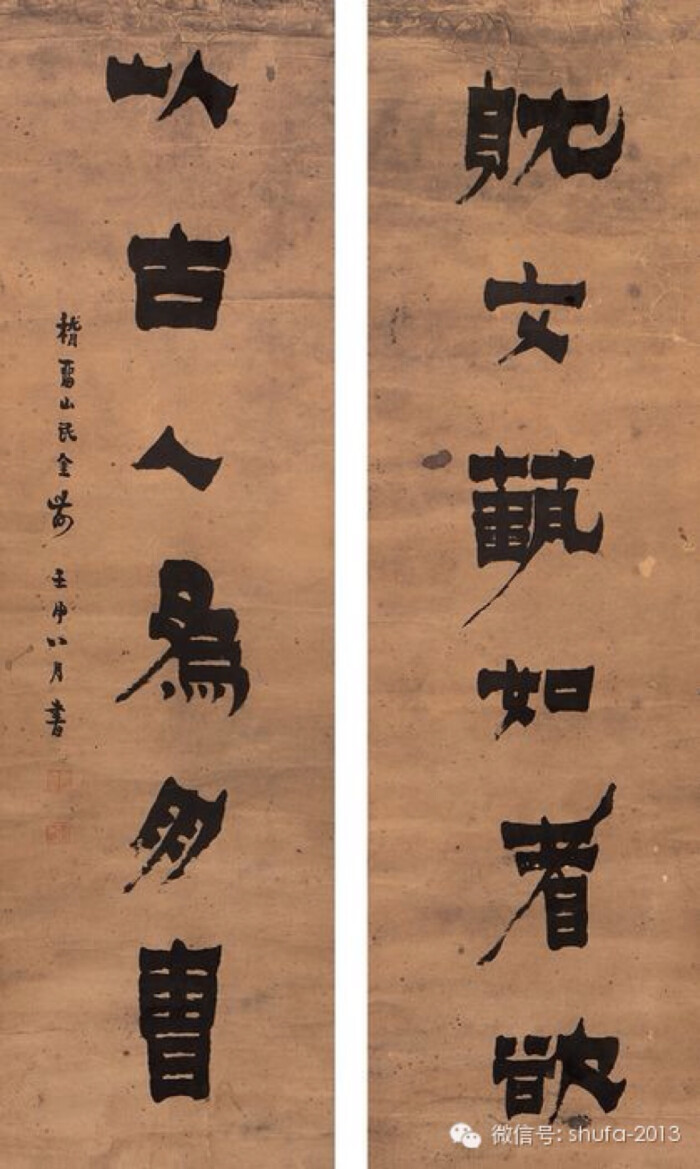 躭文蓺如耆欲
以古人為朋曹
稽畱山民金農 壬申八月書
微信号: shufa-2013